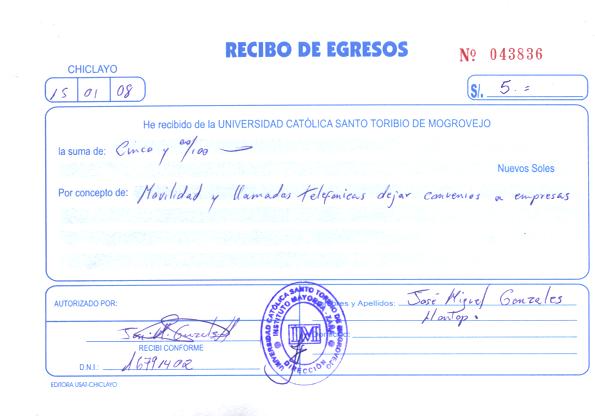 RECIBO DE EGRESOS
Nº 043836
CHICLAYO
15 01 08
S/. 5.=
He recibido de la UNIVERSIDAD CATÓLICA SANTO TORIBIO DE MOGROVEJO
la suma de: Cinco y 00/100
Nuevos Soles
Por concepto de: Movilidad y llamadas telefonicas dejar convenios a empresas
AUTORIZADO POR:
es y Apellidos: José Miguel Gonzales
RECIBI CONFORME
D.N.I.: 16791402
UNIVERSIDAD CATÓLICA SANTO TORIBIO DE MOGROVEJO
DIRECCIÓN
EDITORA USAT-CHICLAYO